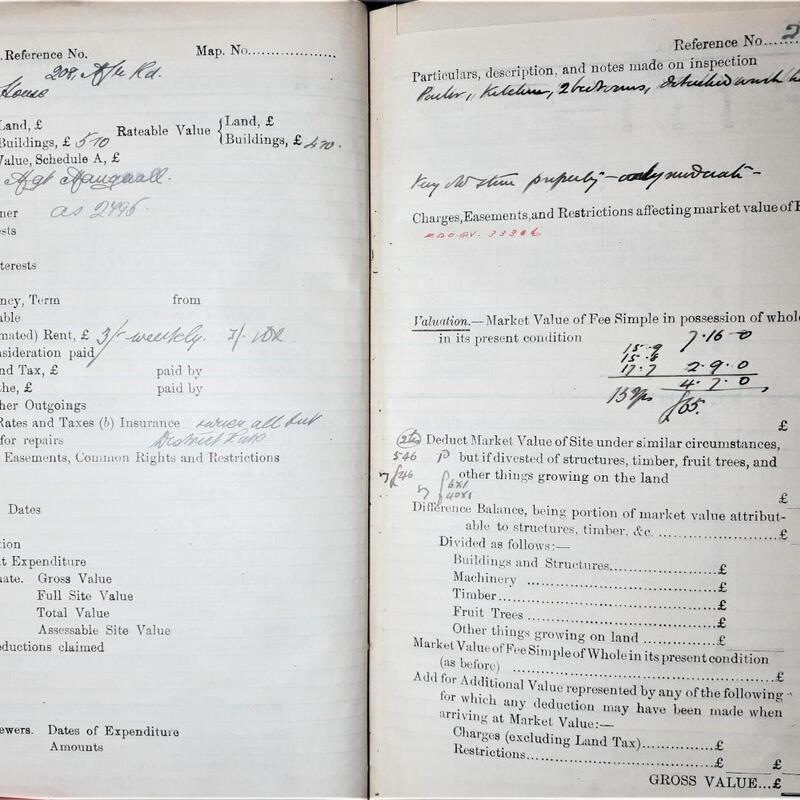 . Reference No.
Map. No.................
209,
House
Land, £
Buildings, £ 5 10
Rateable Value { Land, £
Buildings, £ 4.10.
Value, Schedule A, £
ner as 2495.
ests
terests
ncy, Term from
able
mated) Rent, £ 3/- weekly.
nsideration paid
nd Tax, £ paid by
the, £ paid by
her Outgoings
Rates and Taxes (b) Insurance owner all but
for repairs District Rate
Easements, Common Rights and Restrictions
Dates
tion
t Expenditure
nate. Gross Value
Full Site Value
Total Value
Assessable Site Value
eductions claimed
ewers. Dates of Expenditure
Amounts
Reference No...... 2
Particulars, description, and notes made on inspection
Parlor, Kitchen, 2 bedrooms, detached wash
Very old stone property - only moderate -
Charges, Easements, and Restrictions affecting market value of F
33306
Valuation.—Market Value of Fee Simple in possession of whole
in its present condition
15..9 7.16-0
15..8
17.7 2.9.0
4.7.0
15 yps £65.
£
Deduct Market Value of Site under similar circumstances,
but if divested of structures, timber, fruit trees, and
other things growing on the land
546
£46
6x1
40x1
£
Difference Balance, being portion of market value attribut-
able to structures, timber, &c. ........................£
Divided as follows:—
Buildings and Structures....................£
Machinery ....................................£
Timber........................................£
Fruit Trees ..................................£
Other things growing on land ...............£
Market Value of Fee Simple of Whole in its present condition
(as before) .............................................£
Add for Additional Value represented by any of the following
for which any deduction may have been made when
arriving at Market Value:—
Charges (excluding Land Tax)...............£
Restrictions....................................£ £
GROSS VALUE...£